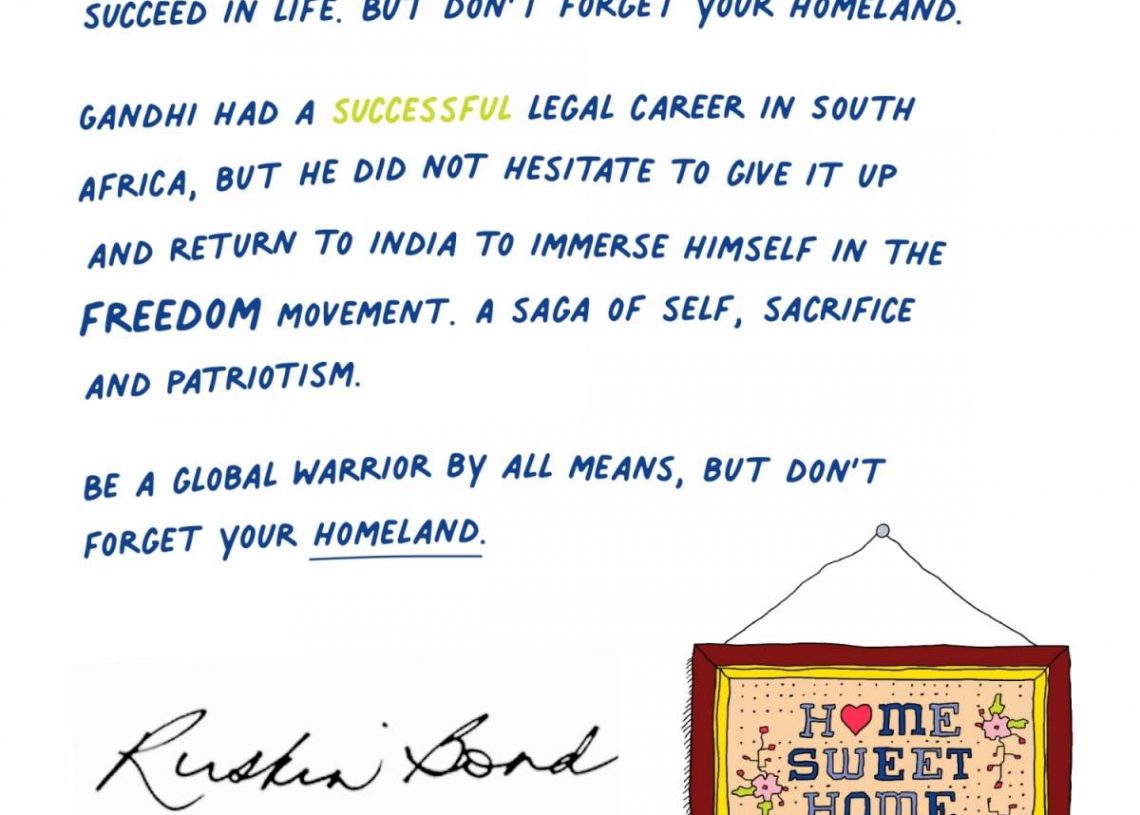 SUCCEED IN LIFE. BUT DON'T FORGET YOUR HOMELAND.
GANDHI HAD A SUCCESSFUL LEGAL CAREER IN SOUTH
AFRICA, BUT HE DID NOT HESITATE TO GIVE IT UP
AND RETURN TO INDIA TO IMMERSE HIMSELF IN THE
FREEDOM MOVEMENT. A SAGA OF SELF, SACRIFICE
AND PATRIOTISM.
BE A GLOBAL WARRIOR BY ALL MEANS, BUT DON'T
FORGET YOUR HOMELAND.
Ruskin Bond
H❤ME
SWEET
HOME